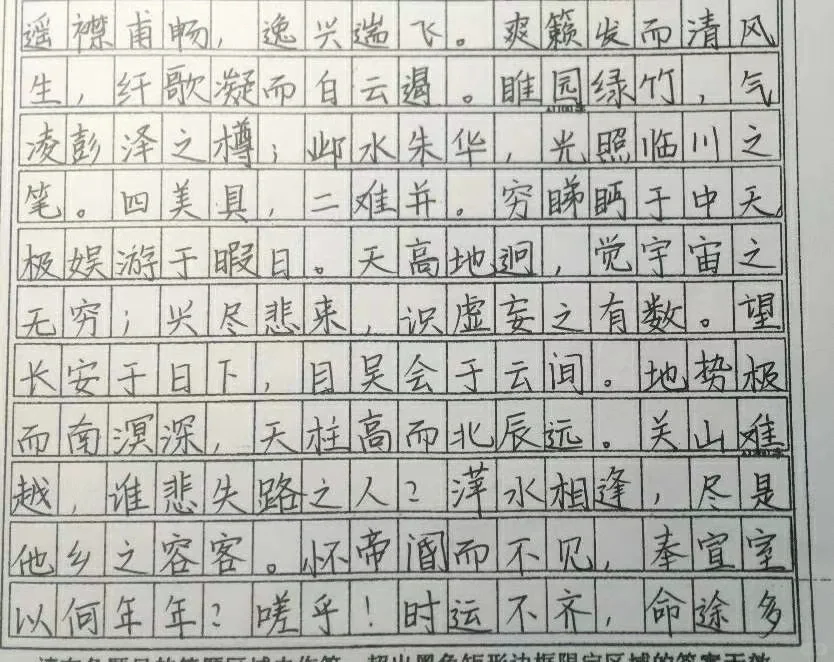 遥襟甫畅，逸兴遄飞。爽籁发而清风
生，纤歌凝而白云遏。睢园绿竹，气
凌彭泽之樽；邺水朱华，光照临川之
笔。四美具，二难并。穷睇眄于中天，
极娱游于暇日。天高地迥，觉宇宙之
无穷；兴尽悲来，识虚妄之有数。望
长安于日下，目吴会于云间。地势极
而南溟深，天柱高而北辰远。关山难
越，谁悲失路之人？萍水相逢，尽是
他乡之容客。怀帝阍而不见，奉宣室
以何年年？嗟乎！时运不齐，命途多
请在各题目的答题区域内作答，超出黑色矩形边框限定区域的答案无效